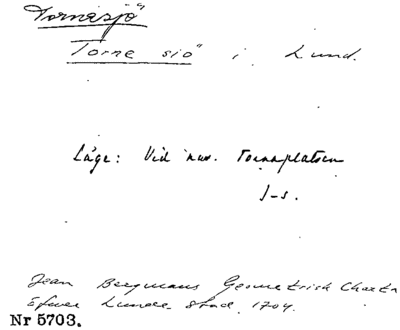 Tornesjö
Torne siö i Lund.
Läge: Vid nuv. Tornaplatsen
J-s.
Jean Bergmans Geometrisk Charta
Efver Lunde Stad, 1704.
Nr 5703.